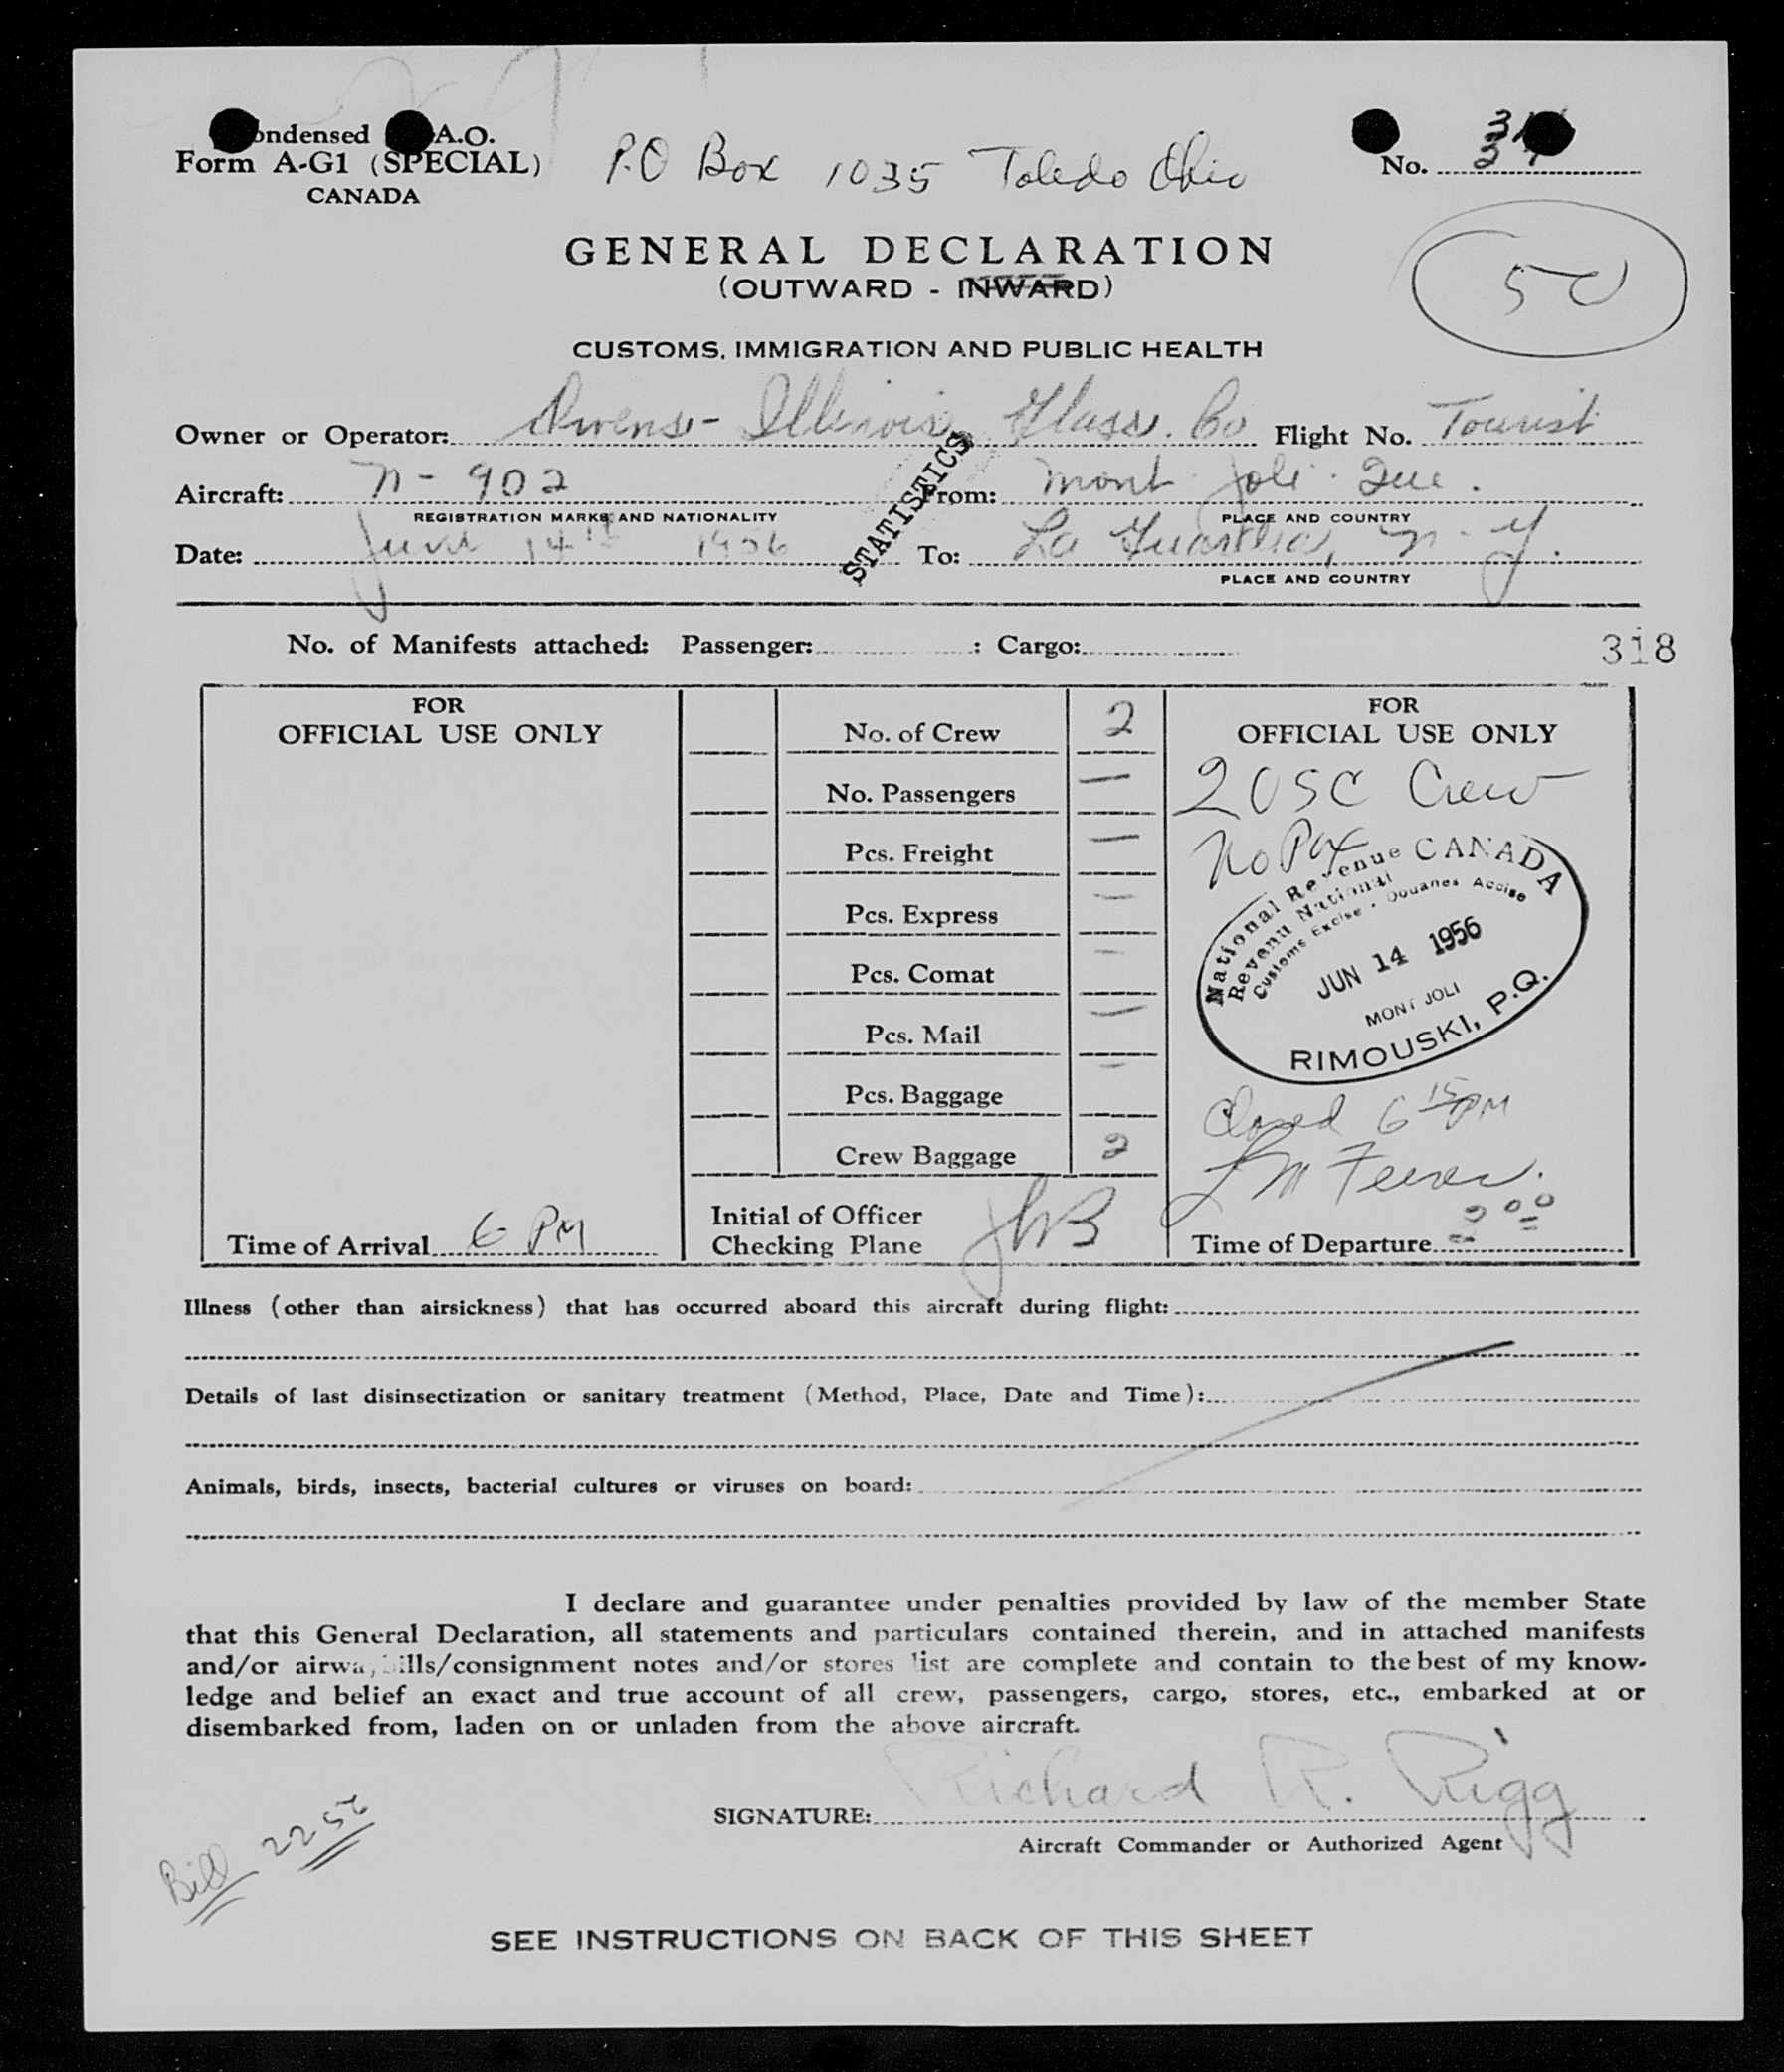 ondensed A.O.
Form A-G1 (SPECIAL)
CANADA
P.O Box 1035 Toledo Ohio
No.
GENERAL DECLARATION
(OUTWARD - INWARD)
50
CUSTOMS, IMMIGRATION AND PUBLIC HEALTH
Owner or Operator: Owens-Illinois Glass Co Flight No. Tourist
Aircraft: N-902 From: Mont Joli Que.
REGISTRATION MARKS AND NATIONALITY PLACE AND COUNTRY
STATISTICS
Date: June 14th 1956 To: La Guardia, N.Y.
PLACE AND COUNTRY
No. of Manifests attached: Passenger: : Cargo:
318
FOR
OFFICIAL USE ONLY
Time of Arrival 6 PM
No. of Crew 2
No. Passengers —
Pcs. Freight —
Pcs. Express —
Pcs. Comat —
Pcs. Mail —
Pcs. Baggage —
Crew Baggage 2
Initial of Officer
Checking Plane JWB
FOR
OFFICIAL USE ONLY
2 USC Crew
No Pax
National Revenue CANADA
Revenu National
Customs Excise - Douanes Accise
JUN 14 1956
MONT JOLI
RIMOUSKI, P.Q.
Closed 6 15 PM
Time of Departure
Illness (other than airsickness) that has occurred aboard this aircraft during flight:
Details of last disinsectization or sanitary treatment (Method, Place, Date and Time):
Animals, birds, insects, bacterial cultures or viruses on board:
I declare and guarantee under penalties provided by law of the member State
that this General Declaration, all statements and particulars contained therein, and in attached manifests
and/or airwaybills/consignment notes and/or stores list are complete and contain to the best of my know-
ledge and belief an exact and true account of all crew, passengers, cargo, stores, etc., embarked at or
disembarked from, laden on or unladen from the above aircraft.
SIGNATURE: Richard R. Rigg
Aircraft Commander or Authorized Agent
Bill 22 56
SEE INSTRUCTIONS ON BACK OF THIS SHEET